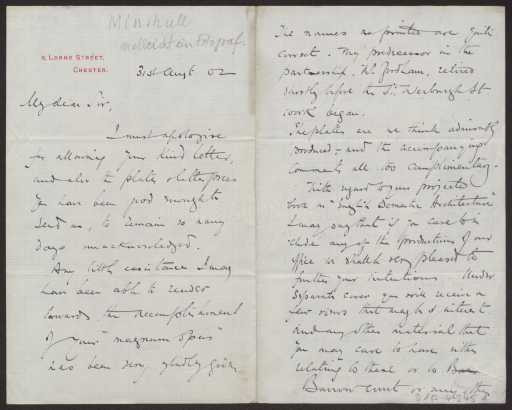 Minshull
5, LORNE STREET,
CHESTER.
31st Augt 02
My dear Sir,
I must apologise
for allowing your kind letter,
and also the plates & letterpress
you have been good enough to
send us, to remain so many
days unacknowledged.
Any little assistance I may
have been able to render
towards the accomplishment
of your "magnum opus"
has been very gladly given.
The names as printed are quite
correct. My predecessor in the
partnership, Mr. Fordham, retired
shortly before the St. Werburgh St
work began.
The plates are we think admirably
produced, and the accompanying
comments all too complimentary.
With regard to your projected
book on "English Domestic Architecture"
I may say that if you care to
include any of the productions of our
office we shall be very pleased to
further your intentions. Under
separate cover you will receive a
few views that may be of interest
and any other material that
you may care to have either
relating to these or to
Barrow Court or any other